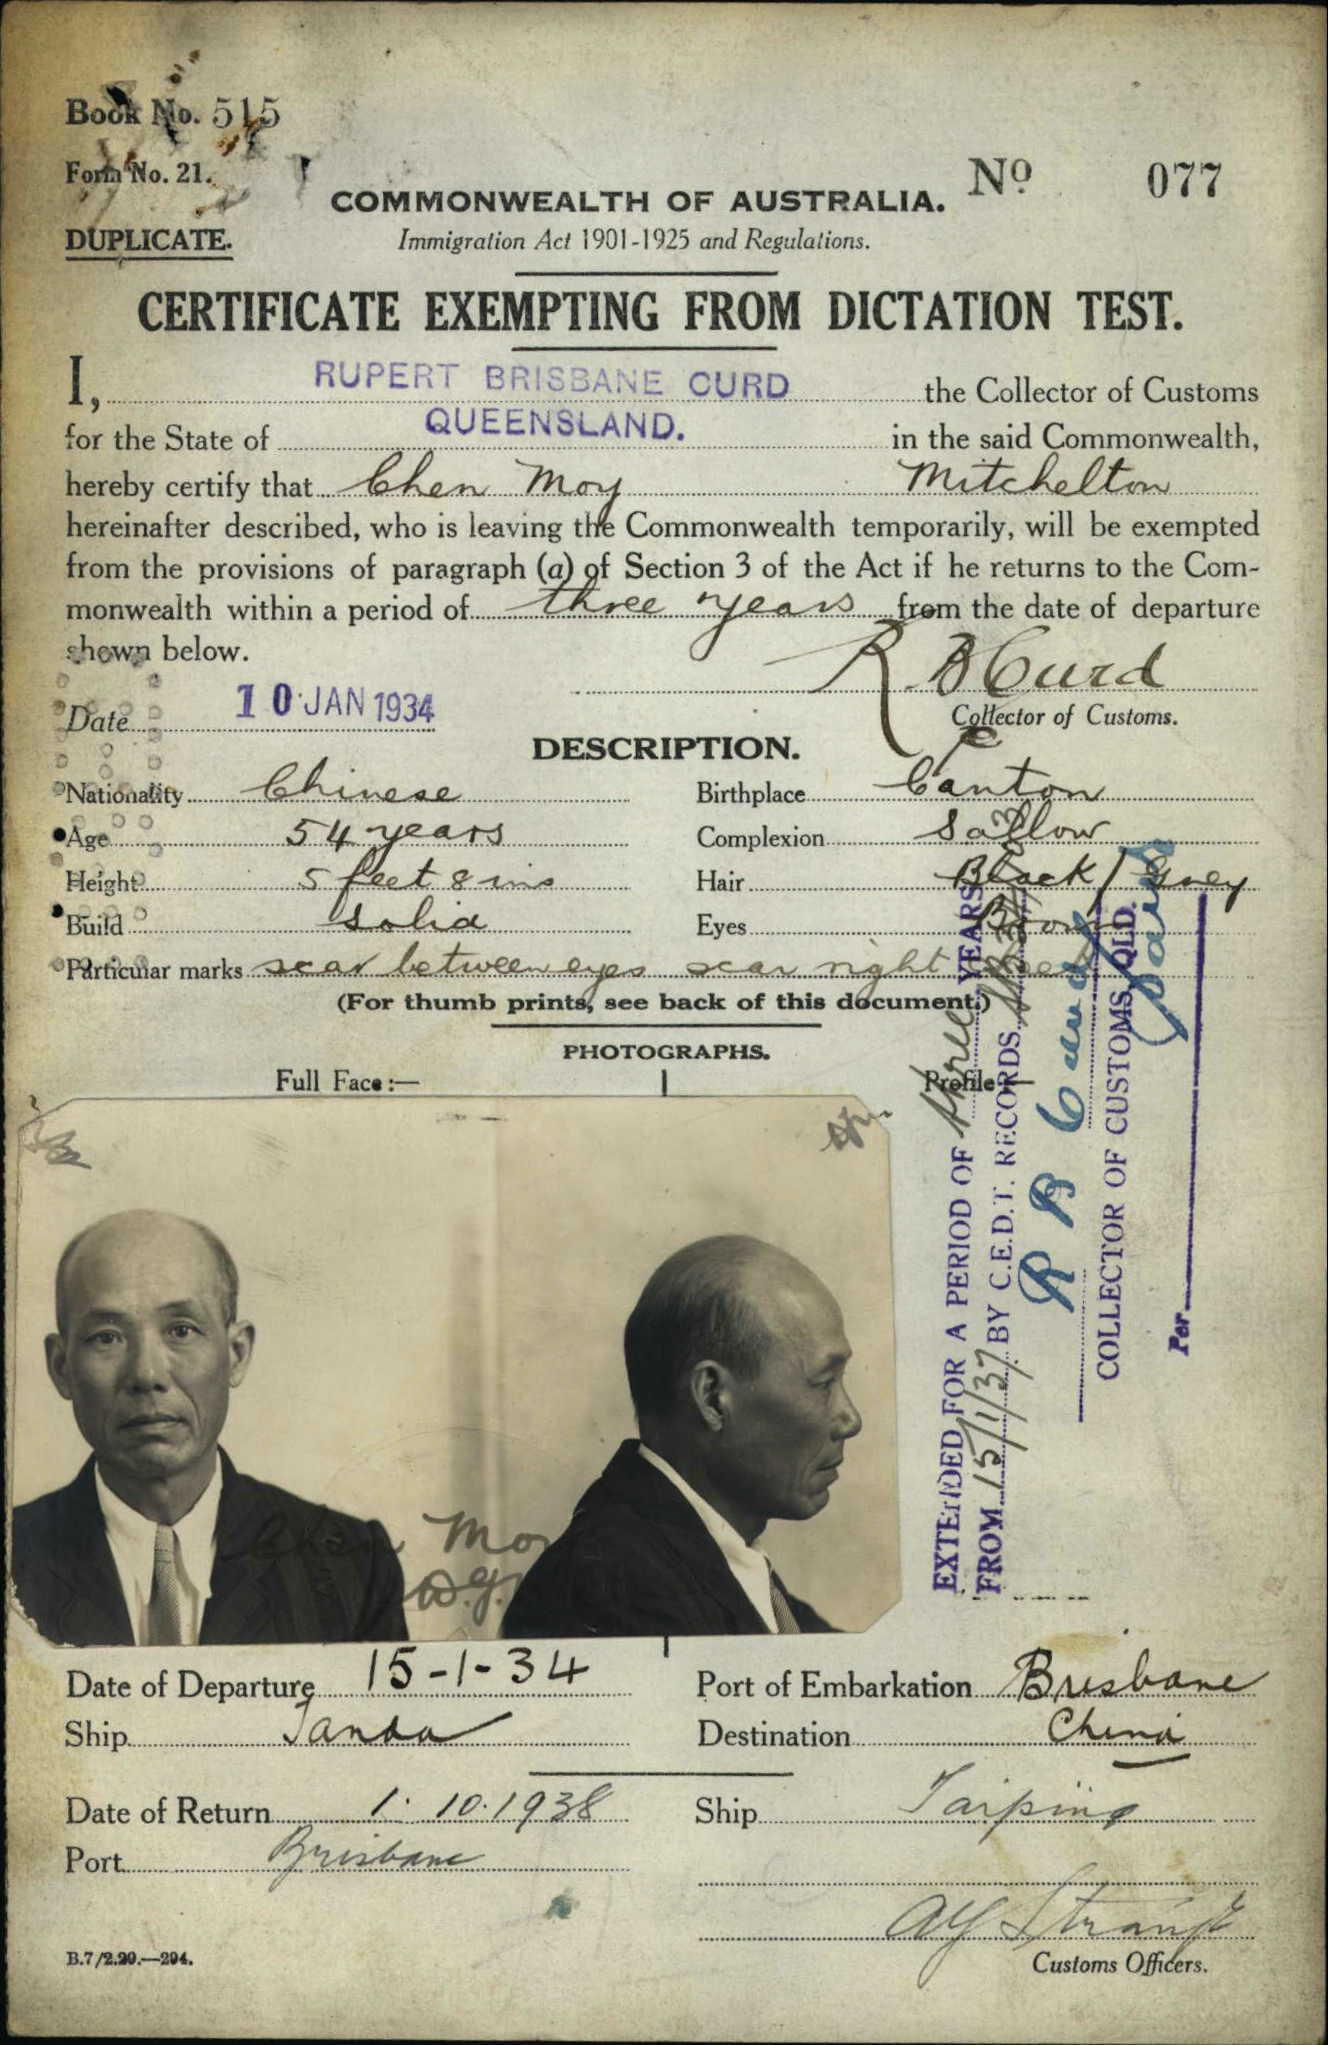 Book No. 515
Form No. 21.
DUPLICATE.
COMMONWEALTH OF AUSTRALIA.
No 077
Immigration Act 1901-1925 and Regulations.
CERTIFICATE EXEMPTING FROM DICTATION TEST.
I, RUPERT BRISBANE CURD the Collector of Customs
for the State of QUEENSLAND. in the said Commonwealth,
hereby certify that Chen Moy Mitchelton
hereinafter described, who is leaving the Commonwealth temporarily, will be exempted
from the provisions of paragraph (a) of Section 3 of the Act if he returns to the Com-
monwealth within a period of three years from the date of departure
shown below.
R B Curd
Date 10 JAN 1934
Collector of Customs.
DESCRIPTION.
Nationality Chinese Birthplace Canton
Age 54 years Complexion Sallow
Height 5 feet 8 ins Hair Black / Grey
Build solid Eyes Brown
Particular marks scar between eyes scar right
(For thumb prints, see back of this document.)
PHOTOGRAPHS.
Full Face:— Profile:—
EXTENDED FOR A PERIOD OF three YEARS
FROM 15/1/37 BY C.E.D.T. RECORDS
R B Curd
COLLECTOR OF CUSTOMS, QLD.
Per
Chen Moy
Date of Departure 15-1-34 Port of Embarkation Brisbane
Ship Tanda Destination China
Date of Return 1. 10. 1938 Ship Taiping
Port Brisbane
Customs Officers.
B.7/2.29.—294.